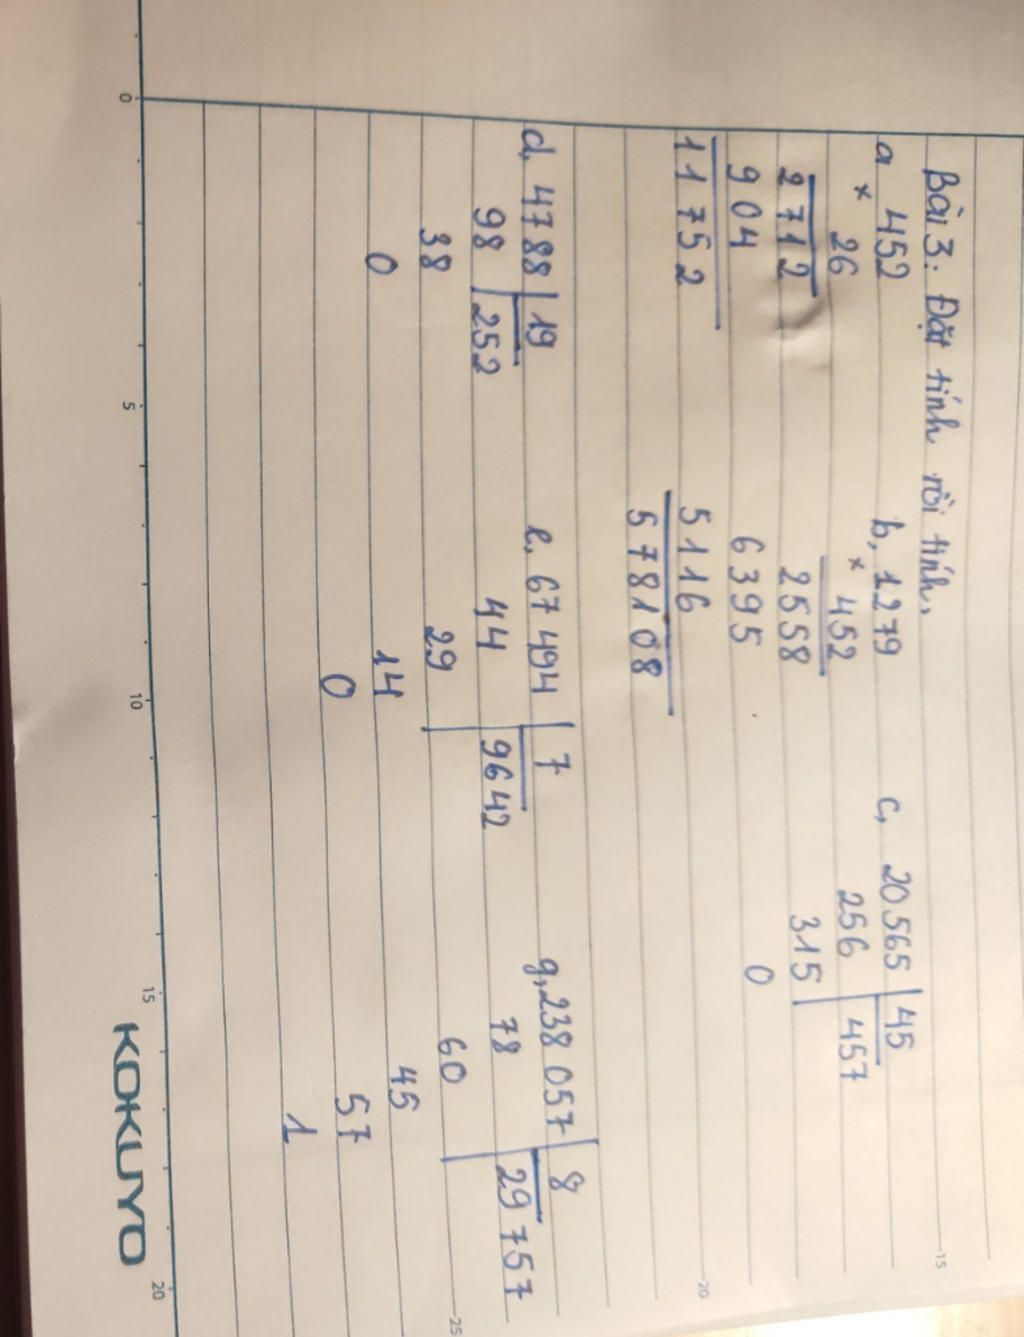 Bài 3: Đặt tính rồi tính.
a 452
× 26
2712
904
11752
b, 1279
× 452
2558
6395
5116
578108
c, 20565 | 45
256 | 457
315
0
d, 4788 | 19
98 | 252
38
0
e, 67494 | 7
44 | 9642
29
14
0
g, 238057 | 8
78 | 29757
60
45
57
1
0
5
10
15
20
15
20
25
KOKUYO